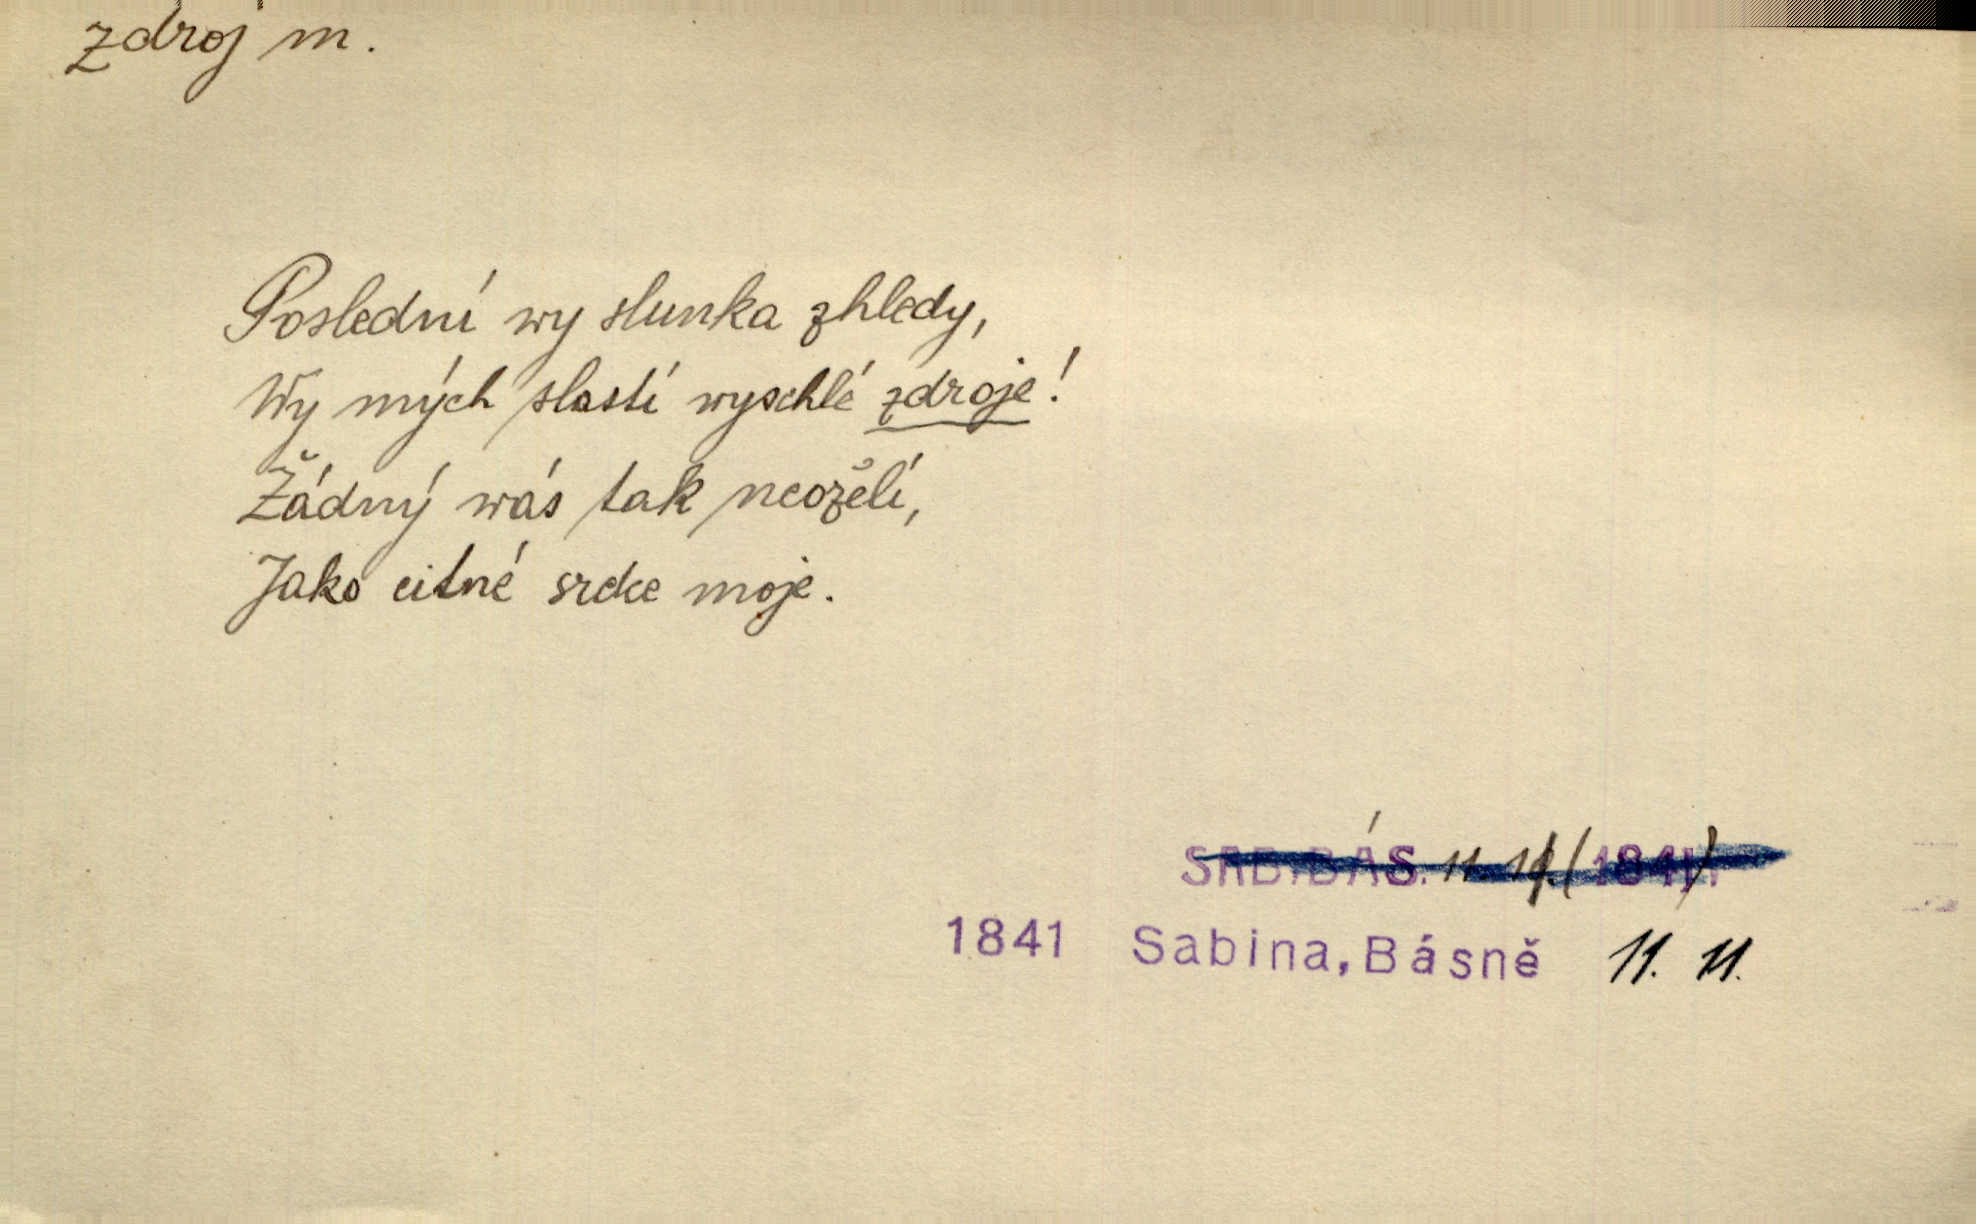 zdroj m.
Poslední wy slunka zhledy,
Wy mých slastí wyschlé zdroje!
Žádný wás tak neozělí,
Jako citné srdce moje.
SRB.BÁS. 11. (1841).
1841 Sabina, Básně 11. 11.